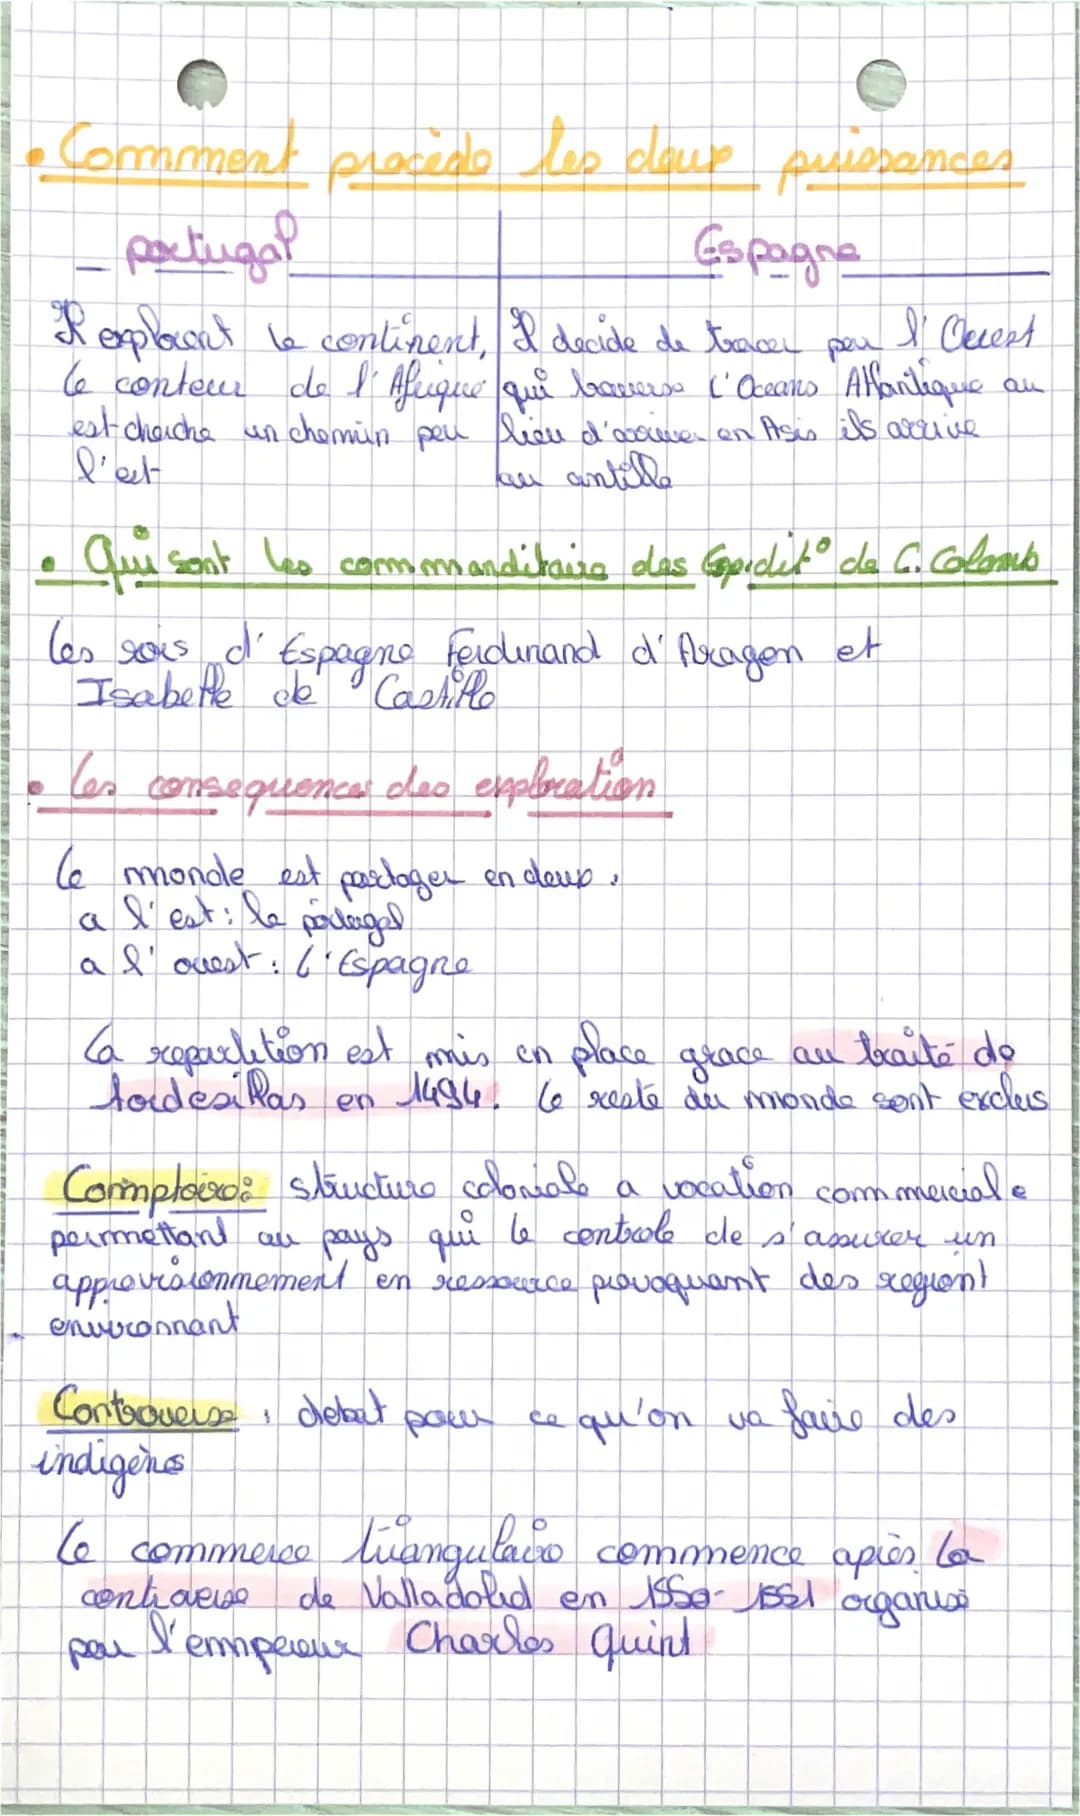 • Comment procède les deux puissances
portugal
Il explorent le continent,
le conteur de l'Afrique
est cherche un chemin par
l'est
Espagne
Il decide de tracer par l'Ouest
qui traverse l'Oceans Atlantique au
lieu d'arriver en Asis ils arrive
au antille
• Qui sont les commanditaire des Expedit° de C. Colomb
les rois d'Espagne Ferdinand d'Aragon et
Isabelle de Castille
• les consequences des exploration
le monde est partager en deux :
a l'est : le portugal
a l'ouest : l'Espagne
la repartition est mis en place grace au traité de
tordesillas en 1494. le reste du monde sont exclus
Comptoire : structure coloniale a vocation commerciale
permettant au pays qui le controle de s'assurer un
approvisionnement en ressource provoquant des regiont
environnant
Controverse : debat pour ce qu'on va faire des
indigènes
le commerce triangulaire commence après la
controverse de Valladolid en 1550-1551 organisé
par l'empereur Charles Quint